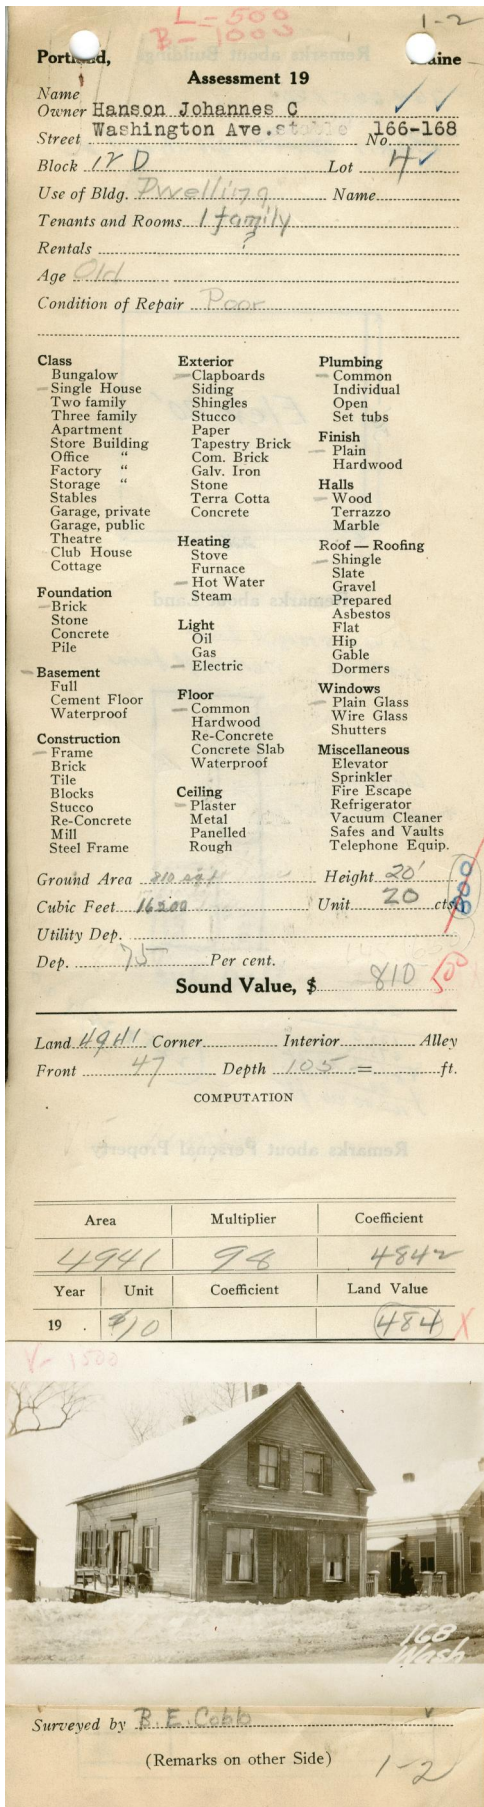 L-500
B-1000
1-2
Portland, Maine
Assessment 19
Name
Owner Hanson Johannes C
Street Washington Ave. stable No. 166-168
Block 12 D Lot 4
Use of Bldg. Dwelling Name
Tenants and Rooms 1 family
Rentals ?
Age Old
Condition of Repair Poor
Class
Bungalow
Single House
Two family
Three family
Apartment
Store Building
Office "
Factory "
Storage "
Stables
Garage, private
Garage, public
Theatre
Club House
Cottage
Foundation
Brick
Stone
Concrete
Pile
Basement
Full
Cement Floor
Waterproof
Construction
Frame
Brick
Tile
Blocks
Stucco
Re-Concrete
Mill
Steel Frame
Exterior
Clapboards
Siding
Shingles
Stucco
Paper
Tapestry Brick
Com. Brick
Galv. Iron
Stone
Terra Cotta
Concrete
Heating
Stove
Furnace
Hot Water
Steam
Light
Oil
Gas
Electric
Floor
Common
Hardwood
Re-Concrete
Concrete Slab
Waterproof
Ceiling
Plaster
Metal
Panelled
Rough
Plumbing
Common
Individual
Open
Set tubs
Finish
Plain
Hardwood
Halls
Wood
Terrazzo
Marble
Roof — Roofing
Shingle
Slate
Gravel
Prepared
Asbestos
Flat
Hip
Gable
Dormers
Windows
Plain Glass
Wire Glass
Shutters
Miscellaneous
Elevator
Sprinkler
Fire Escape
Refrigerator
Vacuum Cleaner
Safes and Vaults
Telephone Equip.
Ground Area 810 sq ft Height 20'
Cubic Feet 16200 Unit 20 cts.
800
Utility Dep.
Dep. 75 Per cent.
Sound Value, $ 810
500
Land 4941 Corner Interior Alley
Front 47 Depth 105 = ft.
COMPUTATION
Area Multiplier Coefficient
4941 98 4842
Year Unit Coefficient Land Value
19 . $10 484 X
V-1500
168
Wash
Surveyed by B. E. Cobb
(Remarks on other Side)
1-2